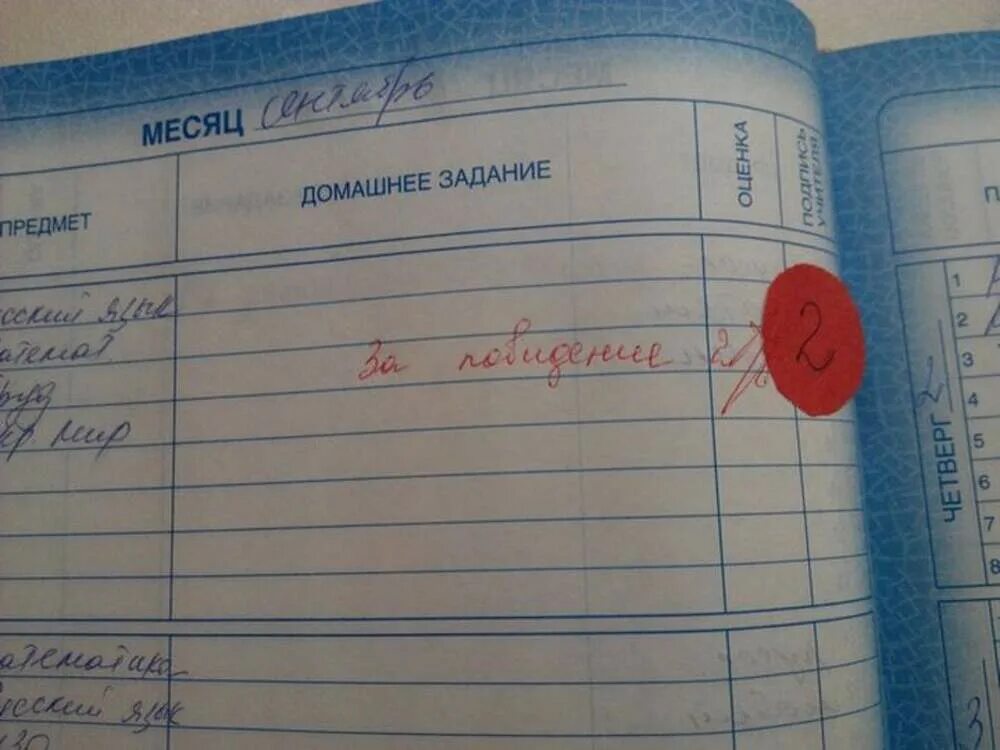 МЕСЯЦ сентябрь
ПРЕДМЕТ ДОМАШНЕЕ ЗАДАНИЕ ОЦЕНКА ПОДПИСЬ УЧИТЕЛЯ
сский язык
атемат
За повидение 2 2
руд
кр мир
атематика
усский язык
ИЗО
П
ЧЕТВЕРГ 2
1
2
3
4
5
6
7
8
3